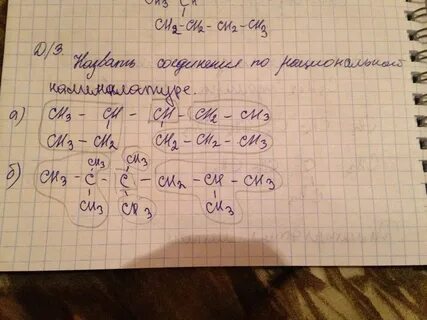 CH
CH₂-CH₂-CH₂-CH₃
Д/З. Назвать соединения по рациональной
наменклатуре.
а) CH₃ - CH - CH - CH₂ - CH₃
CH₃ - CH₂ CH₂ - CH₂ - CH₃
CH₃ CH₃
б) CH₃ - C - C - CH₂ - CH - CH₃
CH₃ CH₃ CH₃